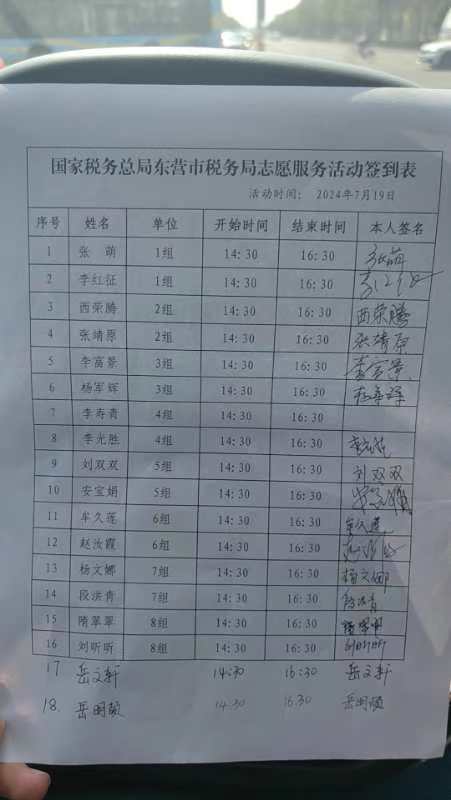 国家税务总局东营市税务局志愿服务活动签到表
活动时间： 2024年7月19日
序号 姓名 单位 开始时间 结束时间 本人签名
1 张 萌 1组 14:30 16:30 张萌
2 李红征 1组 14:30 16:30
3 西荣腾 2组 14:30 16:30 西荣腾
4 张靖原 2组 14:30 16:30 张靖原
5 李富景 3组 14:30 16:30 李富景
6 杨军辉 3组 14:30 16:30
7 李寿青 4组 14:30 16:30
8 李光胜 4组 14:30 16:30
9 刘双双 5组 14:30 16:30 刘双双
10 安宝娟 5组 14:30 16:30
11 牟久莲 6组 14:30 16:30 牟久莲
12 赵汝霞 6组 14:30 16:30
13 杨文娜 7组 14:30 16:30 杨文娜
14 段洪青 7组 14:30 16:30 段洪青
15 隋翠翠 8组 14:30 16:30
16 刘昕昕 8组 14:30 16:30 刘昕昕
17 岳文轩 14:30 16:30 岳文轩
18. 岳明颐 14.30 16.30